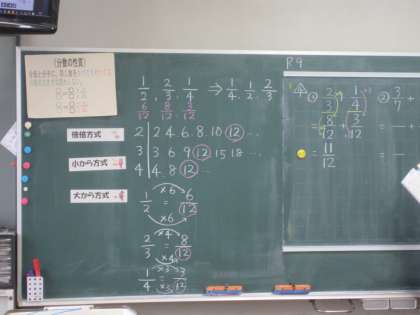 〈分数の性質〉
1/2, 2/3, 1/4 ⇒ 1/4, 1/2, 2/3
6/12 8/12 3/12
倍倍方式
小から方式
大から方式
2 | 2 4 6 8 10 12 …
3 | 3 6 9 12 15 18 …
4 | 4 8 12 …
×6
1/2 = 6/12
×6
×4
2/3 = 8/12
×4
×3
1/4 = 3/12
×3
P.9
① 2/3 + 1/4
= 8/12 + 3/12
= 11/12
② 3/7 +
= +
=